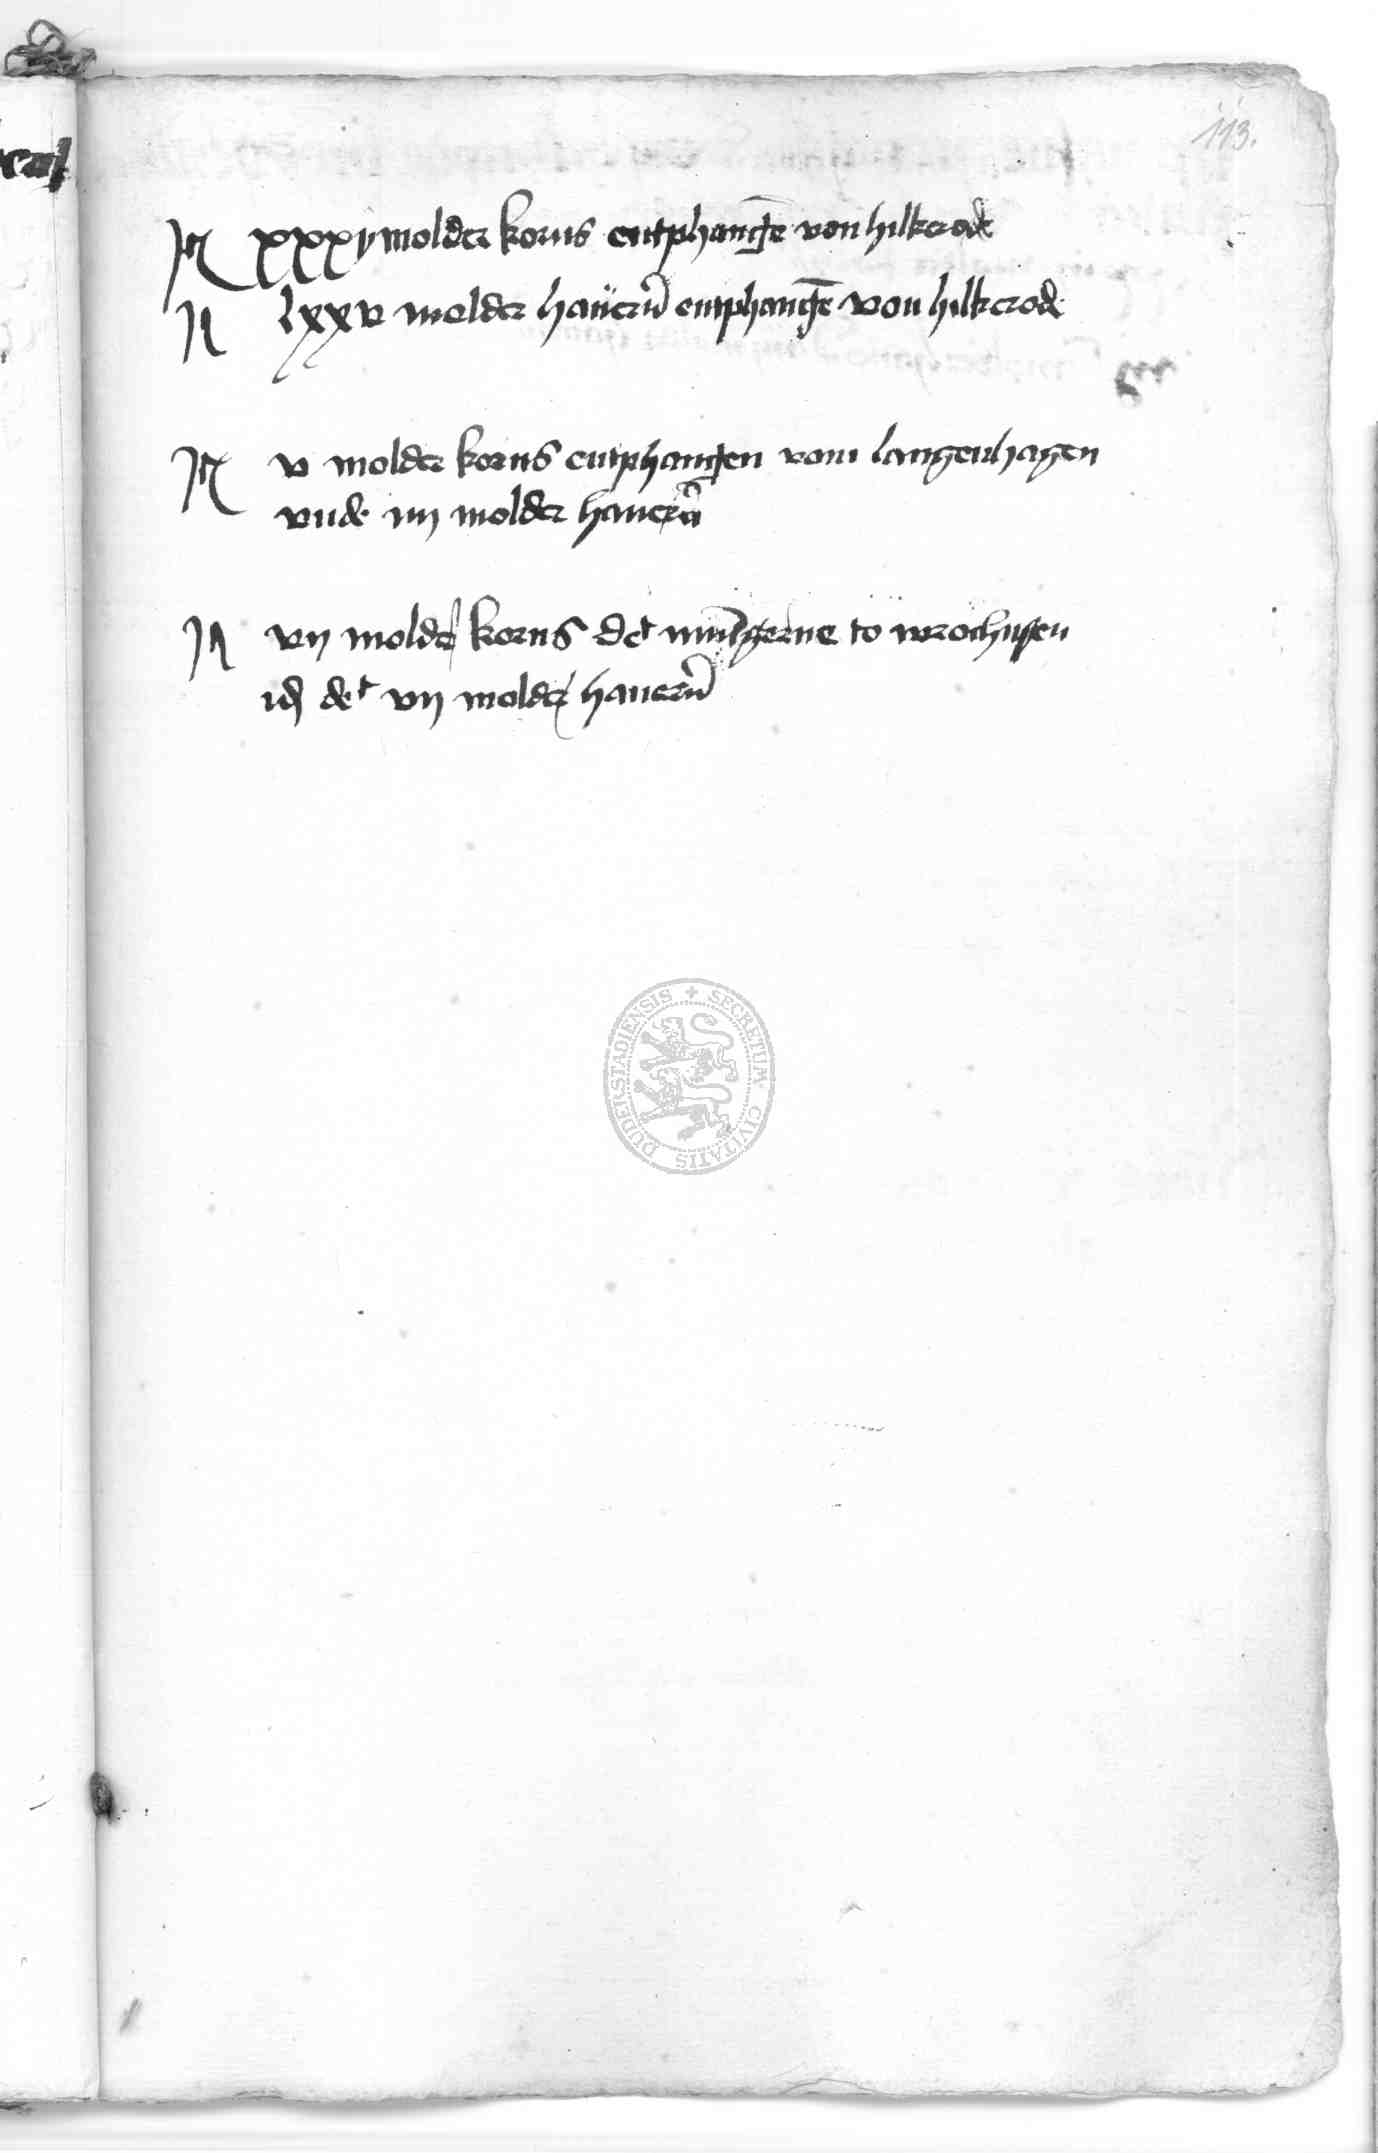 113.
It xxxij molder korns entphangē von hilkerode
It lxxv molder haüerñ entphangē von hilkerod
It v molder korns entphangen vom langenhagen
vnde iiij molder hauerñ
It vij molder korns det to wrochusen
id det vij molder hauerñ
SECRETUM CIVITATIS DUDERSTADIENSIS